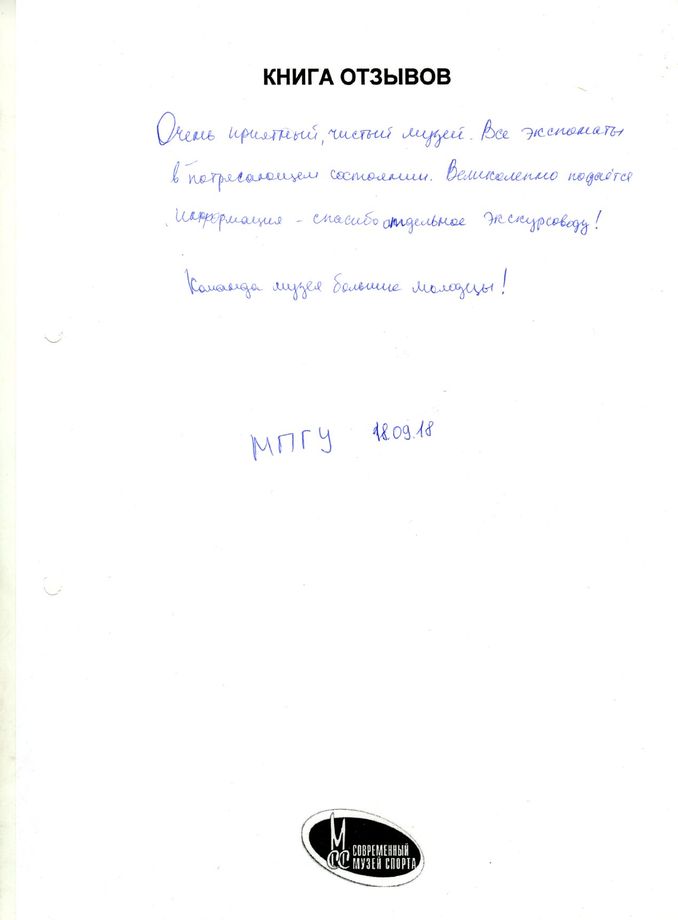 КНИГА ОТЗЫВОВ
Очень приятный, чистый музей. Все экспонаты
в потрясающем состоянии. Великолепно подаётся
информация - спасибо отдельное экскурсоводу!
Команда музея большие молодцы!
МПГУ 18.09.18
МСС СОВРЕМЕННЫЙ
МУЗЕЙ СПОРТА